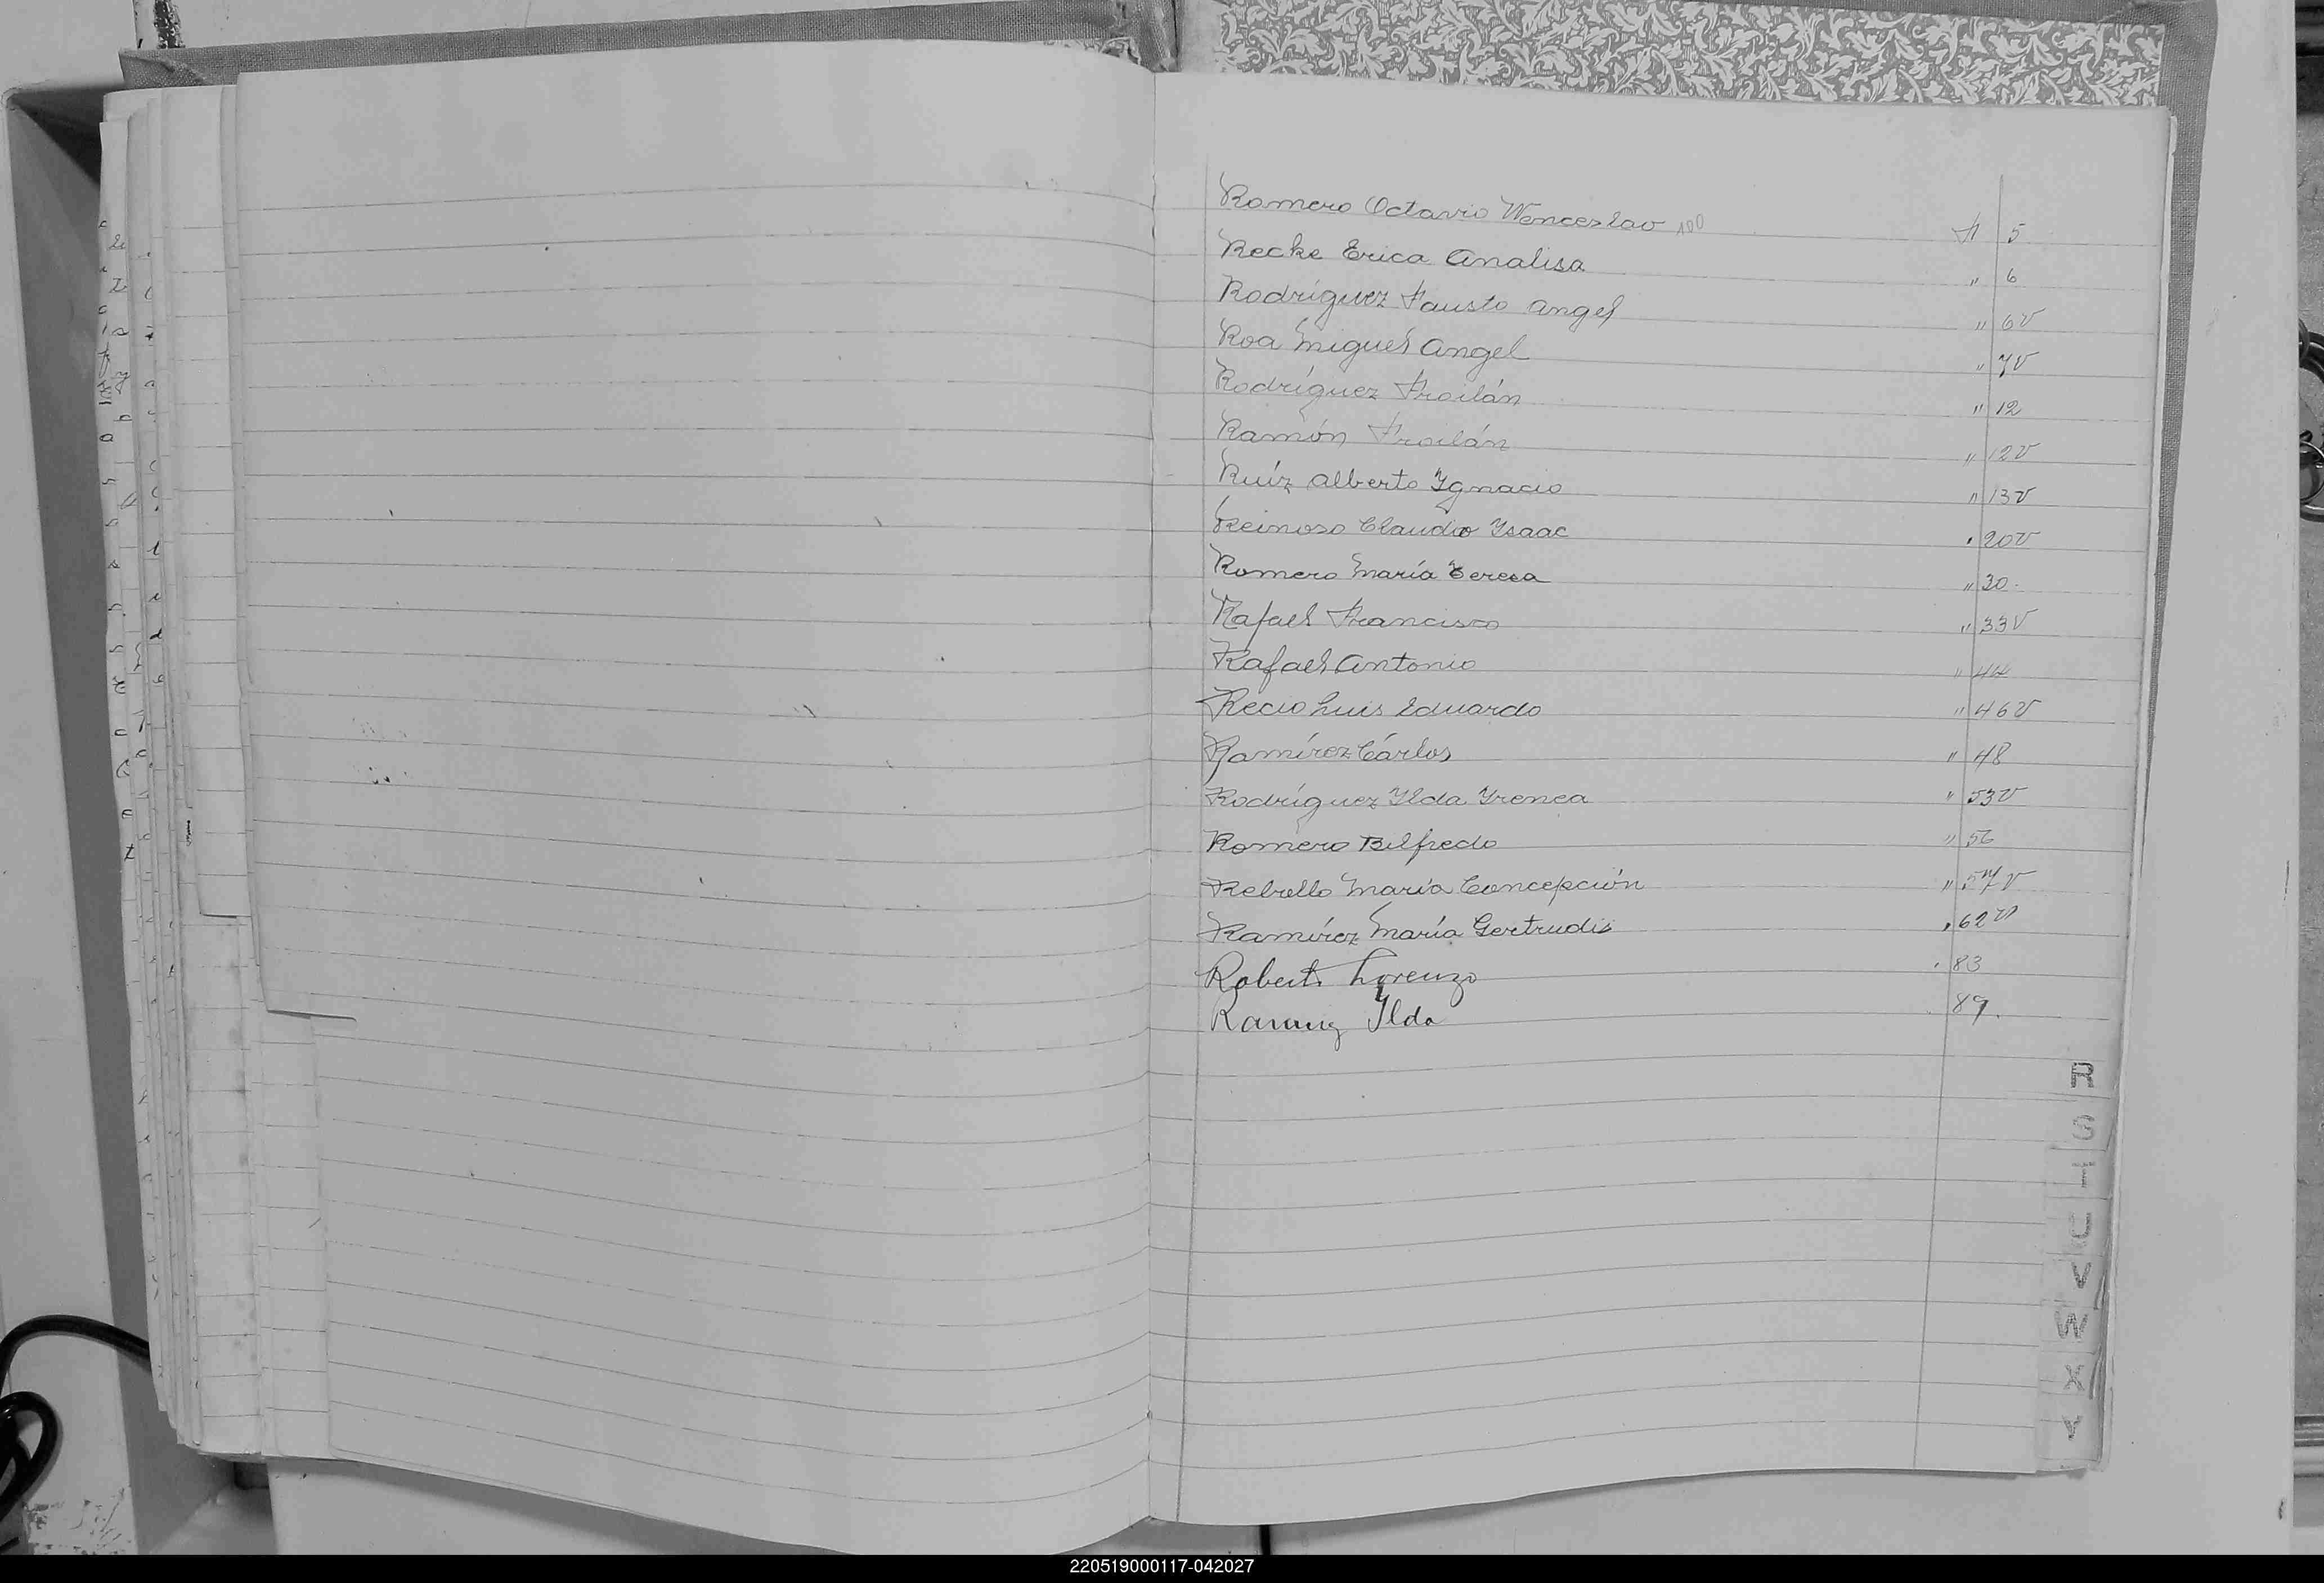 Romero Octavio Wenceslao 100 F 5
Recke Erica Analisa " 6
Rodríguez Fausto Angel " 6v
Roa Miguel Angel " 7v
Rodríguez Froilán " 12
Ramón Froilán " 12v
Ruíz Alberto Ygnacio " 13v
Reinoso Claudio Ysaac . 20v
Romero María Teresa " 30.
Rafael Francisco " 33v
Rafael Antonio " 44
Recio Luis Eduardo " 46v
Ramírez Cárlos " 48
Rodríguez Ylda Yrenea " 53v
Romero Bilfredo " 56
Rebrello María Concepción " 57v
Ramírez María Gertrudis . 62v
Robert Lorenzo . 83
Ylda 89.
R
S
T
U
V
W
X
Y
220519000117-042027